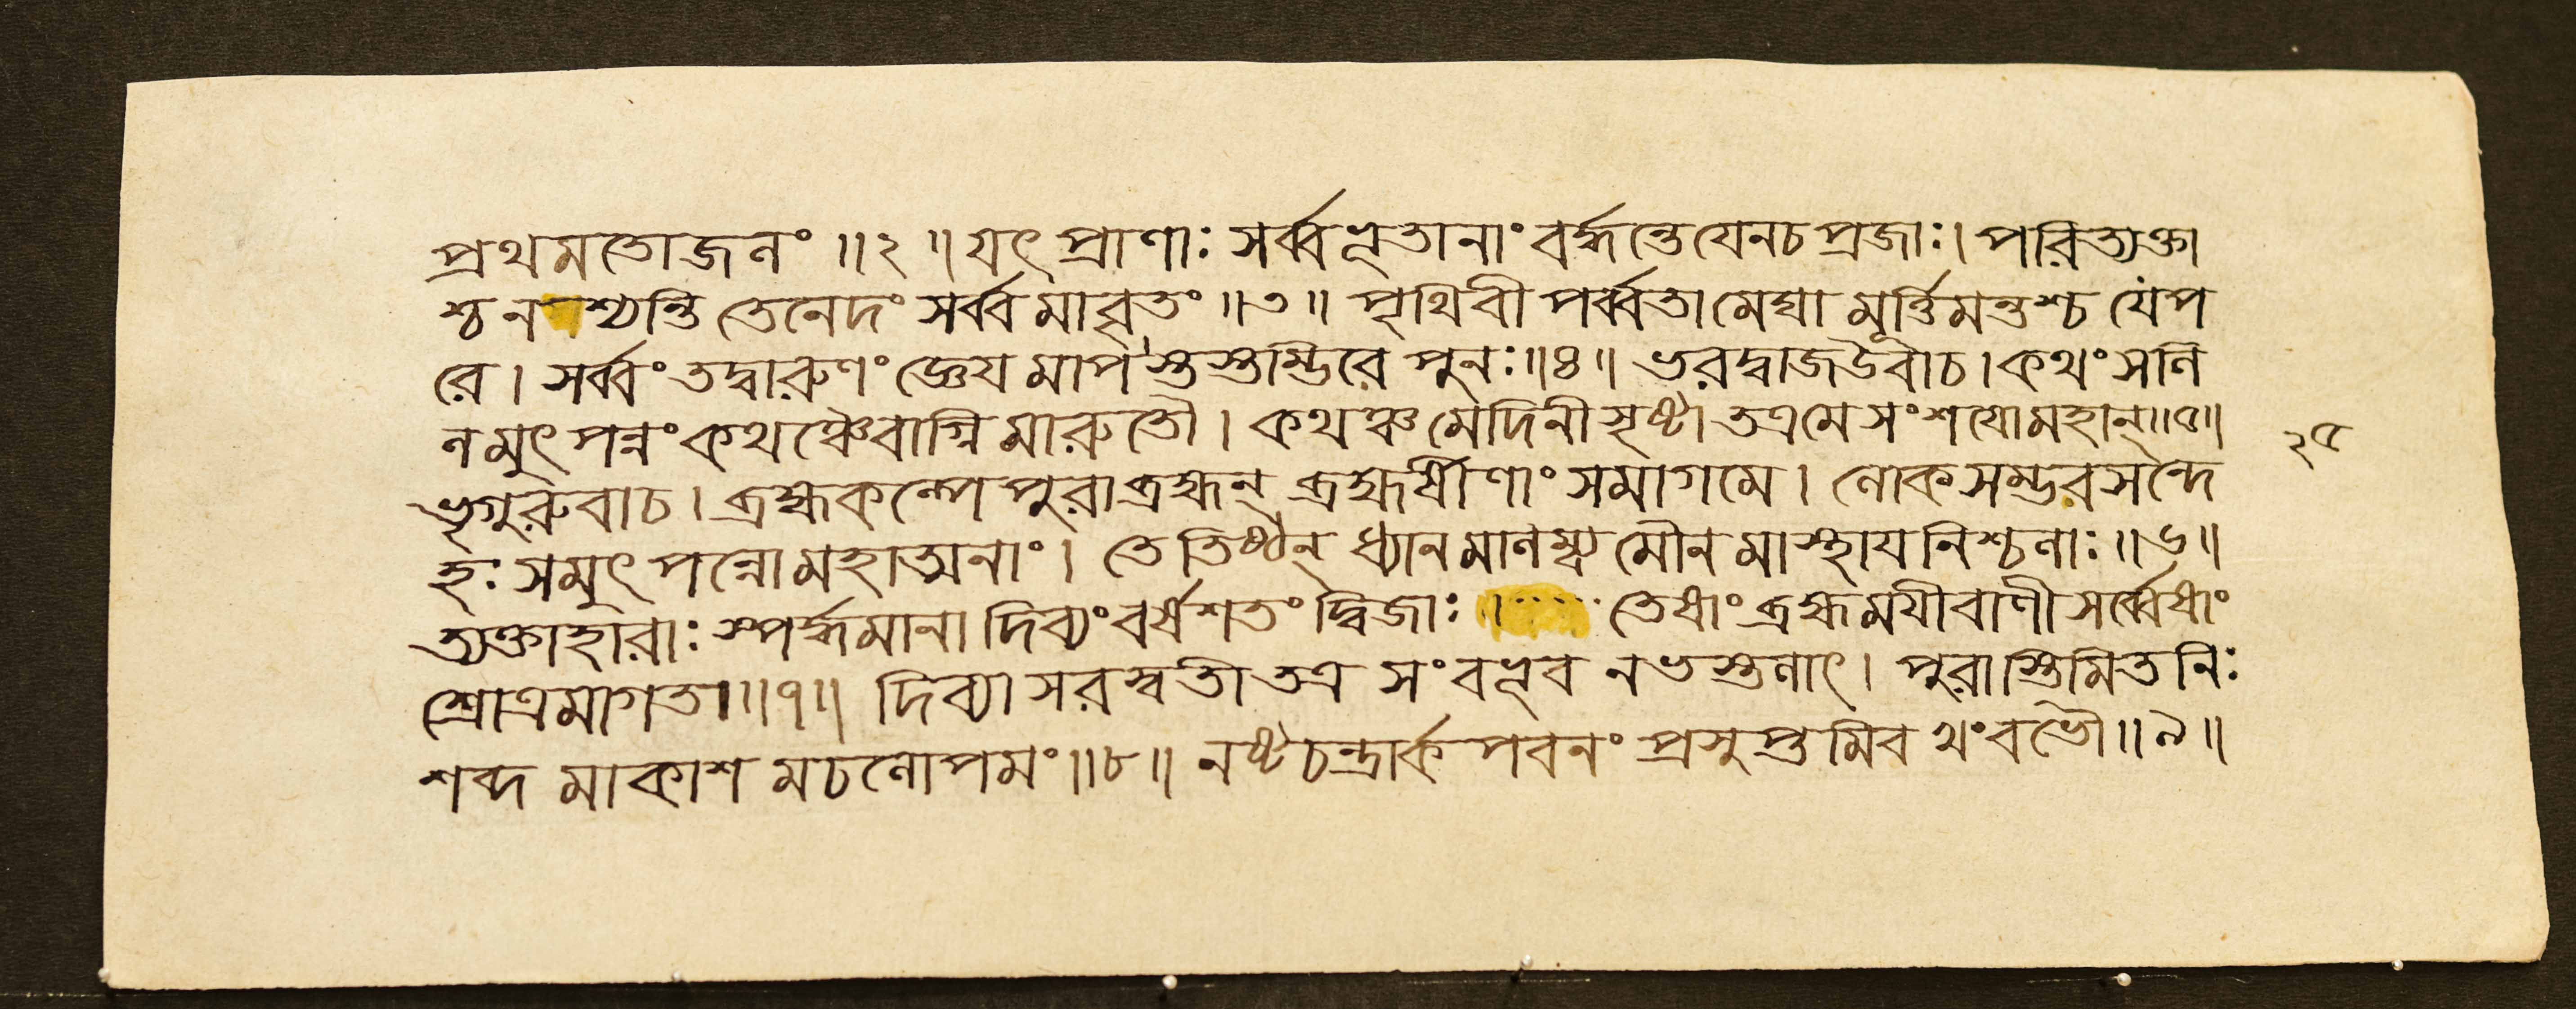 প্রথমতোজনং ॥২॥ যৎ প্রাণাঃ সর্ব্বভূতানাং বর্দ্ধন্তেযেনচপ্রজাঃ। পরিত্যক্তা
শ্চননশ্যন্তি তেনেদং সর্ব্বমাবৃতং ॥৩॥ পৃথিবী পর্ব্বতামেঘা মূর্ত্তিমন্তশ্চ যেপ
রে। সর্ব্বং তদ্বারুণং জ্ঞেয়মাপস্তস্তম্ভিরে পুনঃ॥৪॥ ভরদ্বাজউবাচ। কথং সলি
লমুৎপন্নং কথঞ্চৈবাগ্নিমারুতৌ। কথঞ্চমেদিনীসৃষ্টা তত্রমে সংশয়োমহান্॥৫॥
২৫
ভৃগুরুবাচ। ব্রহ্মকল্পে পুরাব্রহ্মন্ ব্রহ্মর্ষীণাং সমাগমে। লোকসম্ভবসন্দে
হঃ সমুৎপন্নোমহাত্মনাং। তেতিষ্ঠন্ ধ্যানমালম্ব্য মৌনমাস্থায়নিশ্চলাঃ॥৬॥
ত্যক্তাহারাঃ স্পর্দ্ধমানা দিব্যংবর্ষশতং দ্বিজাঃ। তেষাং ব্রহ্মময়ীবাণী সর্ব্বেষাং
শ্রোত্রমাগতা॥৭॥ দিব্যাসরস্বতীতত্র সংবভূব নভস্তলাৎ। পুরাস্তিমিতনিঃ
শব্দমাকাশমচলোপমং॥৮॥ নষ্টচন্দ্রার্কপবনং প্রসুপ্তমিব খংবভৌ॥৯॥